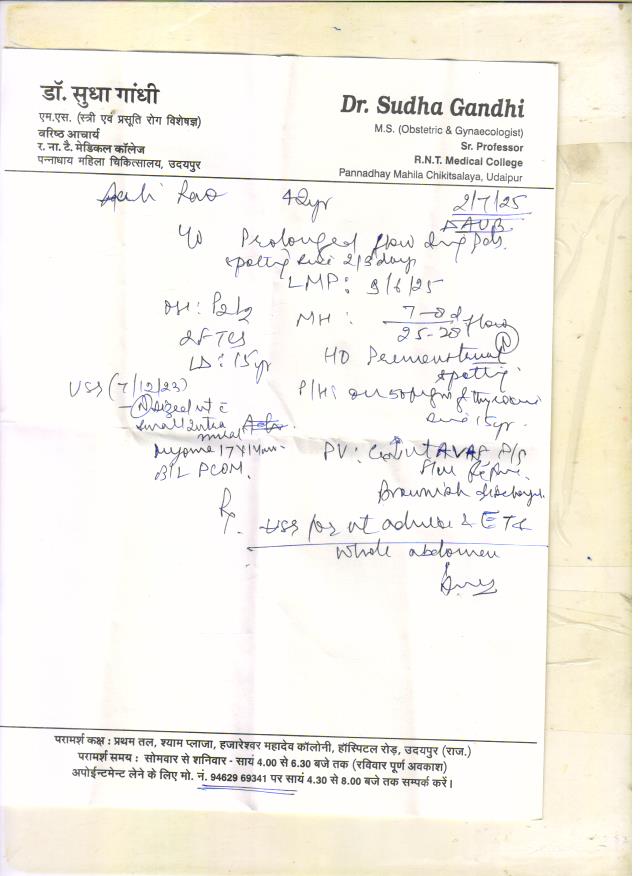 डॉ. सुधा गांधी
एम.एस. (स्त्री एवं प्रसूति रोग विशेषज्ञ)
वरिष्ठ आचार्य
र. ना. टै. मेडिकल कॉलेज
पन्नाधाय महिला चिकित्सालय, उदयपुर
Dr. Sudha Gandhi
M.S. (Obstetric & Gynaecologist)
Sr. Professor
R.N.T. Medical College
Pannadhay Mahila Chikitsalaya, Udaipur
Rao 42yr 2/7/25
AUB
Prolonged flow
spotting 2/3 days
LMP: 9/6/25
OH: P2L2 MH: 7-8d flow
25-28
2FTCS
LD: 15yr HO Premenstrual
spotting
USS (7/12/23) P/H: on 50µgm of thyroxine
15yr.
N sized ut c̄
small intra
mural
myoma 17X14mm
B/L PCOM.
PV: Cx ut AVAF P/S
Brownish discharge
Rx
USS for ut adnexa & ET &
whole abdomen
परामर्श कक्ष : प्रथम तल, श्याम प्लाजा, हजारेश्वर महादेव कॉलोनी, हॉस्पिटल रोड़, उदयपुर (राज.)
परामर्श समय : सोमवार से शनिवार - सायं 4.00 से 6.30 बजे तक (रविवार पूर्ण अवकाश)
अपोईन्टमेन्ट लेने के लिए मो. नं. 94629 69341 पर सायं 4.30 से 8.00 बजे तक सम्पर्क करें।